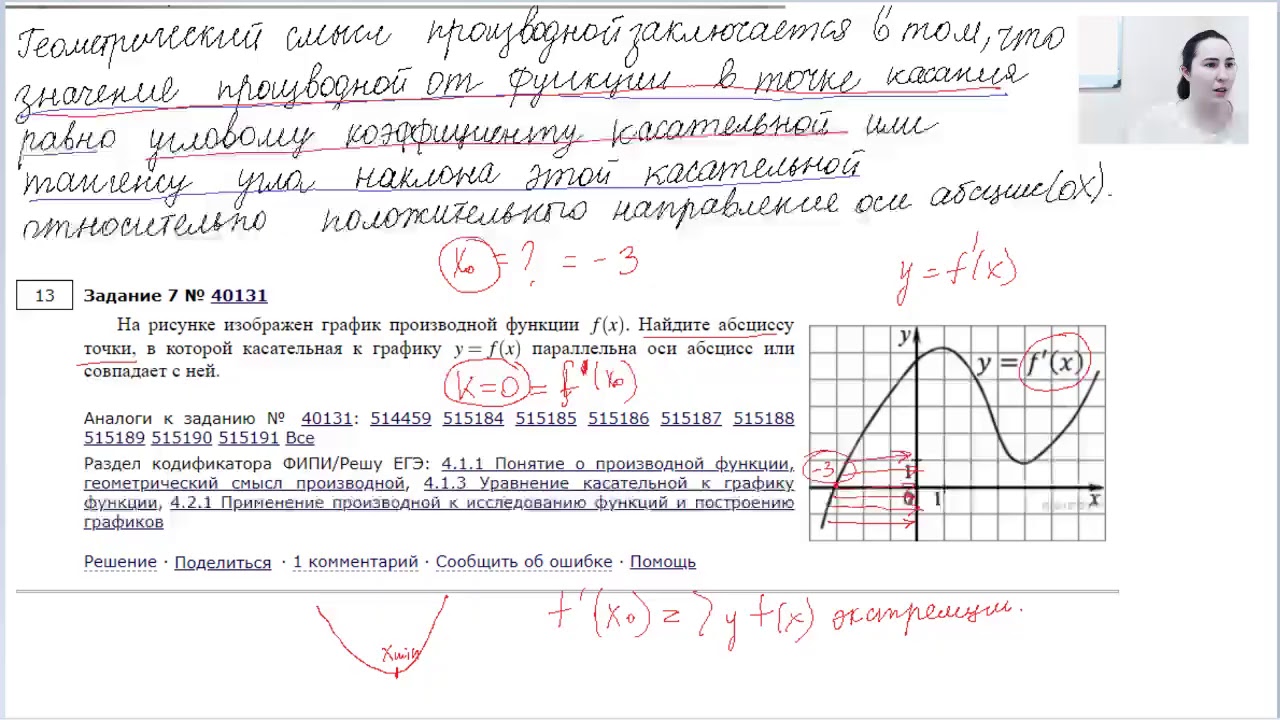 Геометрический смысл производной заключается в том, что
значение производной от функции в точке касания
равно угловому коэффициенту касательной или
тангенсу угла наклона этой касательной
относительно положительного направления оси абсцисс (OX).
x₀ = ? = -3
y = f'(x)
13 Задание 7 № 40131
На рисунке изображен график производной функции f(x). Найдите абсциссу
точки, в которой касательная к графику y = f(x) параллельна оси абсцисс или
совпадает с ней.
K=0 = f'(x₀)
y
y = f'(x)
-3
1
0 1
x
Аналоги к заданию № 40131: 514459 515184 515185 515186 515187 515188
515189 515190 515191 Все
Раздел кодификатора ФИПИ/Решу ЕГЭ: 4.1.1 Понятие о производной функции,
геометрический смысл производной, 4.1.3 Уравнение касательной к графику
функции, 4.2.1 Применение производной к исследованию функций и построению
графиков
Решение · Поделиться · 1 комментарий · Сообщить об ошибке · Помощь
f'(x₀) = у f(x)
xmin